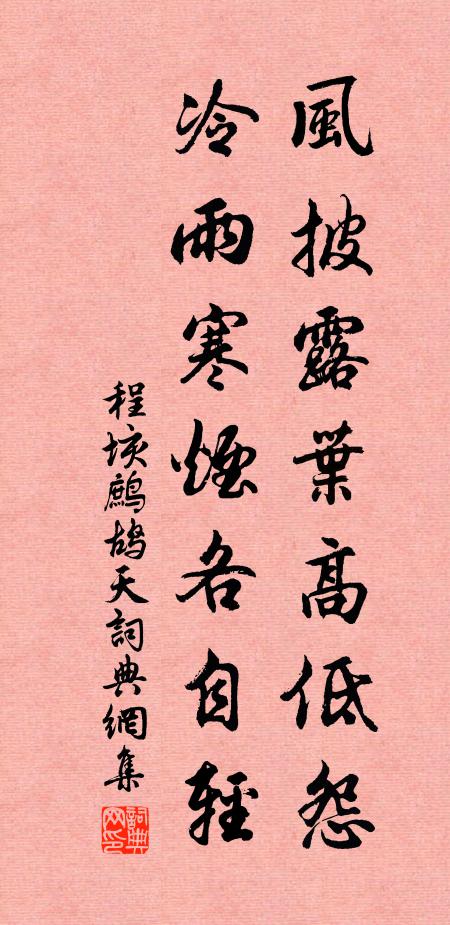 風披露葉高低怨
冷雨寒煙各自輕
程垓鷓鴣天詞典網集
詞典
网印